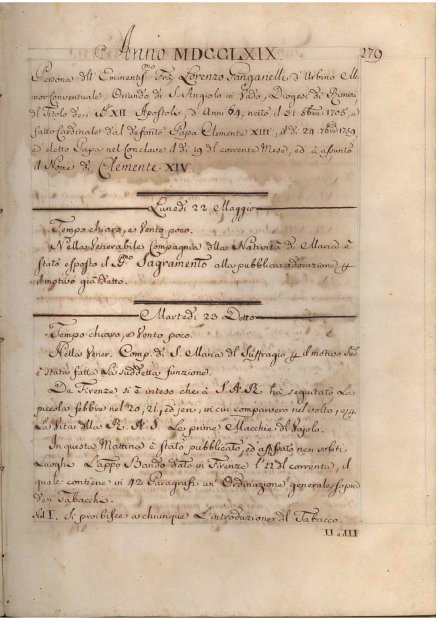 Anno MDCCLXIX. 279
Persona dell' Eminentiss.mo Fra Lorenzo Ganganelli d'Urbino Mi-
nor Conventuale, Oriundo di S. Angiolo in Vado, Diogesi di Rimini,
del Titolo dei SS. XII Apostoli, d'Anni 64, nato il 31 8bre 1705, e
fatto Cardinale dal defonto Papa Clemente XIII, il dì 24 7bre 1759,
ed eletto Papa nel Conclave il dì 19 del corrente Mese, ed à assunto
il Nome di Clemente XIV.
Lunedì 22 Maggio
Tempo chiaro, e Vento poco.
Nella Venerabile Compagnia della Natività di Maria è
stato esposto il SS.mo Sagramento alla pubblica adorazione p
il motivo già detto.
Martedì 23 Detto
Tempo chiaro, e Vento poco.
Nella Vener. Comp. di S. Maria del Suffragio p il motivo sud.
è stata fatta la suddetta funzione.
Da Firenze si è inteso che à S.A.R. ha seguitato la
piccola febbre nel 20, 21, ed jeri, in cui comparvero nel volto, e
la Vita della R.A.S. le prime Macchie del Vajolo.
In questa Mattina è stato pubblicato, ed affisso nei soliti
Luoghi l'appo Bando dato in Firenze l' del corrente, il
quale contiene in 42 Paragrafi un' Ordinazione generale sopra
dei Tabacchi.
Nel I. Si proibisce a chiunque l'introduzione del Tabacco.
II e III